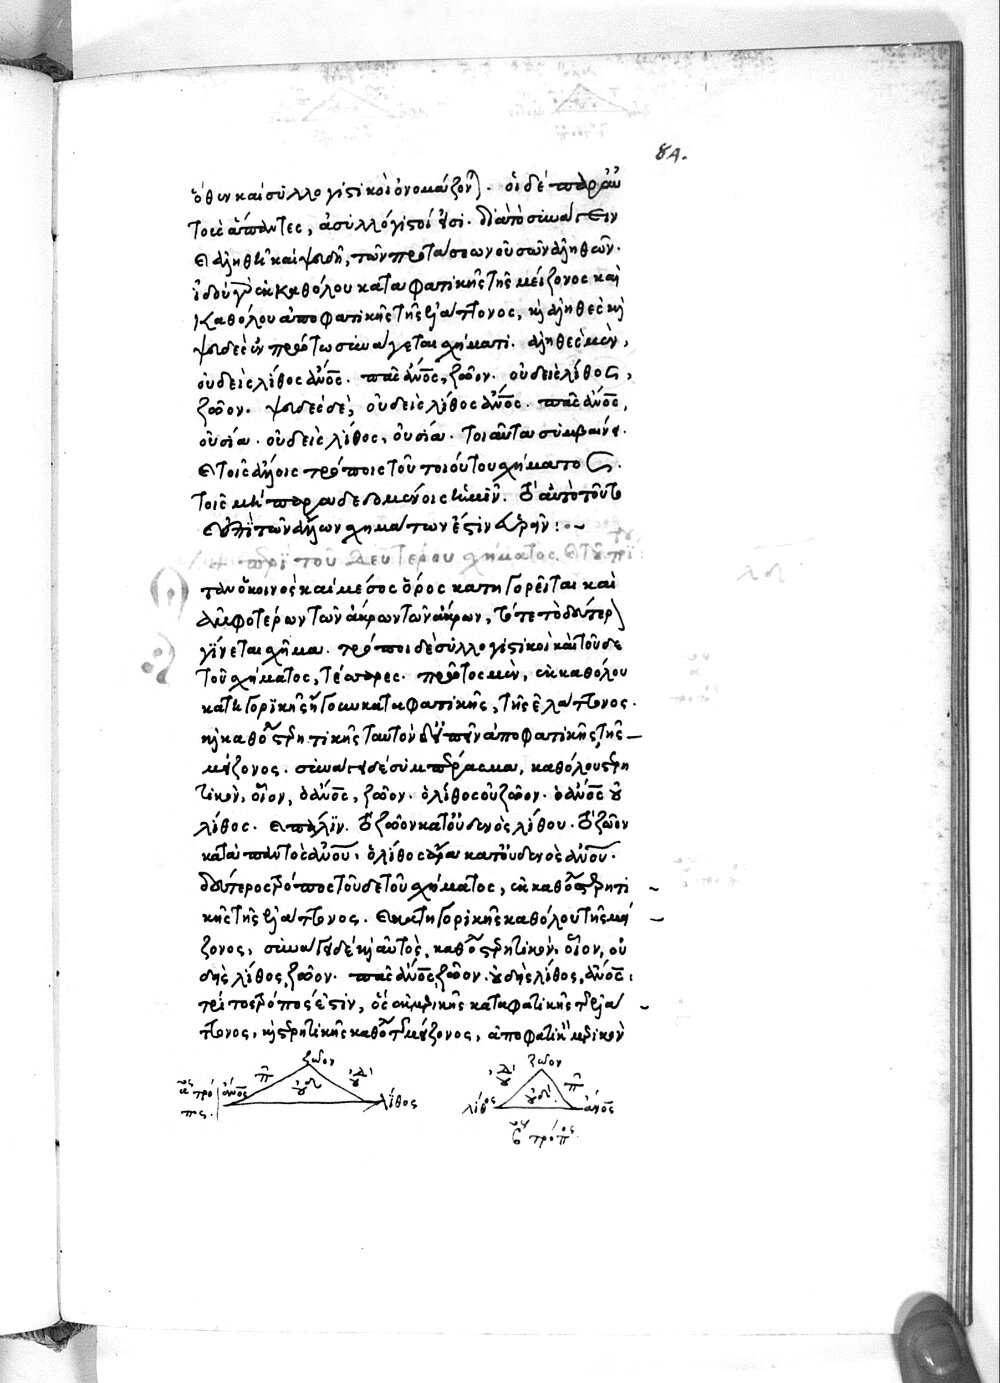 84.
ὅθεν καὶ συλλογιστικοὶ ὀνομάζονται. οἱ δὲ παρ' αὐ
τοὺς ἅπαντες, ἀσυλλόγιστοί εἰσι. διὰ τὸ συνάγειν
καὶ ἀληθῆ καὶ ψευδῆ, τῶν προτάσεων οὐσῶν ἀληθῶν.
ἰδοὺ γὰρ ἐκ καθόλου καταφατικῆς τῆς μείζονος καὶ
καθόλου ἀποφατικῆς τῆς ἐλάττονος, καὶ ἀληθὲς καὶ
ψευδὲς ἐν πρώτῳ συνάγεται σχήματι. ἀληθὲς μὲν,
οὐδεὶς λίθος ἄνος. πᾶς ἄνος, ζῶον. οὐδεὶς λίθος,
ζῶον. ψευδὲς δέ, οὐδεὶς λίθος ἄνος. πᾶς ἄνος,
οὐσία. οὐδεὶς λίθος, οὐσία. τοιαῦτα συμβαίνει
καὶ τοῖς ἄλλοις τρόποις τοῦ τοιούτου σχήματος.
τοῖς μὴ παραδεδομένοις ἡμῖν. τὸ αὐτὸ τοῦτο
καὶ ἐπὶ τῶν ἄλλων σχημάτων ἐστὶν εὑρεῖν:
περὶ τοῦ δευτέρου σχήματος
ὅταν ὁ κοινὸς καὶ μέσος ὅρος κατηγορεῖται κατ'
ἀμφοτέρων τῶν ἄκρων, τότε τὸ δεύτερον
γίνεται σχῆμα. τρόποι δὲ συλλογιστικοὶ καὶ τοῦδε
τοῦ σχήματος, τέσσαρες. πρῶτος μὲν, ἐκ καθόλου
κατηγορικῆς ἤγουν καταφατικῆς, τῆς ἐλάττονος.
καὶ καθόλου στερητικῆς ταυτὸν δ' εἰπεῖν ἀποφατικῆς, τῆς
μείζονος. συνάγει δὲ συμπέρασμα, καθόλου στερη
τικὸν, οἷον, ὁ ἄνος, ζῶον. ὁ λίθος οὐ ζῶον. ὁ ἄνος οὐ
λίθος. καὶ πάλιν. τὸ ζῶον κατ' οὐδενὸς λίθου. τὸ ζῶον
κατὰ παντὸς ἄνου. ὁ λίθος ἄρα κατ' οὐδενὸς ἄνου.
δεύτερος τρόπος τοῦδε τοῦ σχήματος, ἐκ καθόλου στερητι
κῆς τῆς ἐλάττονος. καὶ κατηγορικῆς καθόλου τῆς μεί
ζονος, συνάγει δὲ καὶ αὐτὸς, καθόλου στερητικὸν, οἷον, οὐ
δεὶς λίθος, ζῶον. πᾶς ἄνος, ζῶον. οὐδεὶς λίθος, ἄνος:
τρίτος τρόπός ἐστὶν, ὁ ἐκ μερικῆς καταφατικῆς τῆς ἐλά
ττονος, καὶ στερητικῆς καθόλου τῆς μείζονος, ἀποφατικὸν μερικὸν
ζωον
π
οὐδ
αος τρό
πος.
ἄνος
λίθος
ζωον
οὐδ
π
λίθος
οὐδ
ἄνος
βος τρόπος